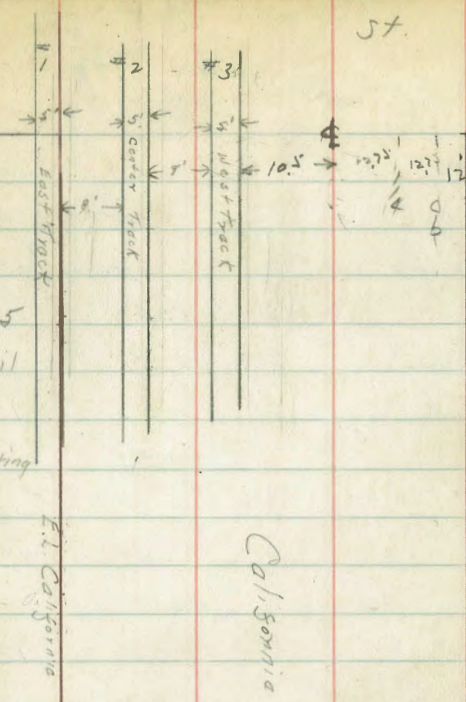 St.
#1
#2
#3
5'
5'
5'
East Track
Center Track
West Track
9'
9'
10.5
℄
12.75
12.75
12
California
E.L. California